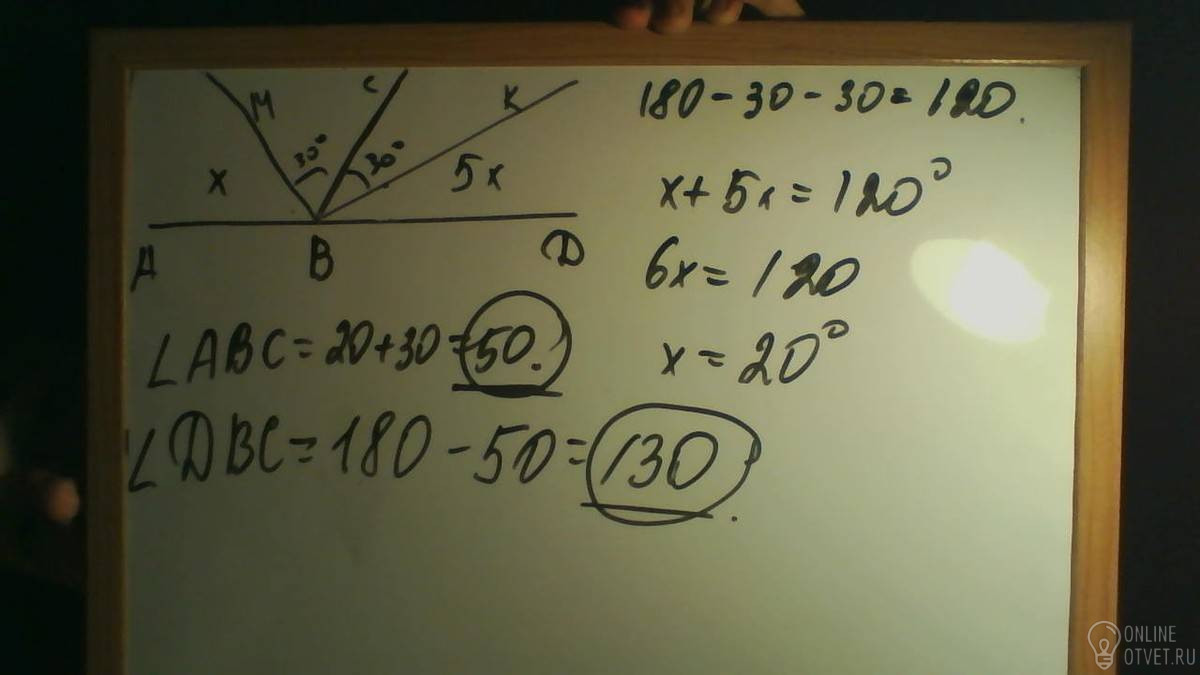 M C K
30° 30°
x 5x
A B D
180 - 30 - 30 = 120.
x + 5x = 120°
6x = 120
x = 20°
∠ABC = 20 + 30 = 50.
∠DBC = 180 - 50 = 130.
ONLINE
OTVET.RU